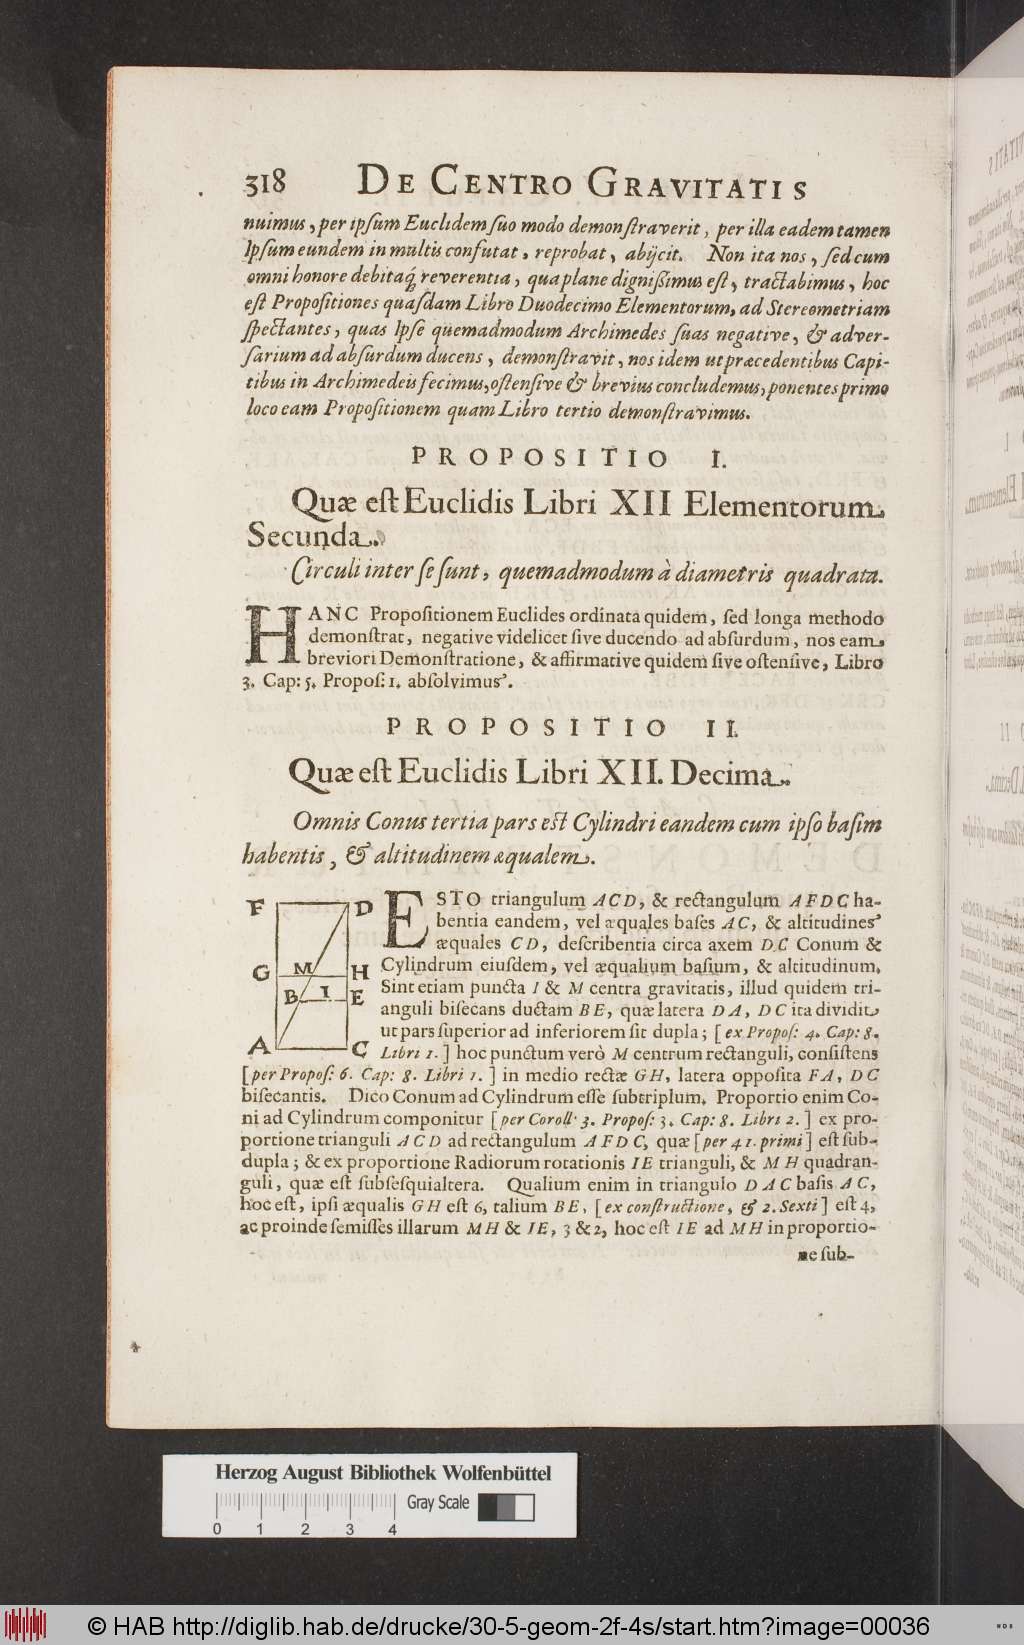 318 DE CENTRO GRAVITATIS
nuimus, per ipſum Euclidem ſuo modo demonſtraverit, per illa eadem tamen
Ipſum eundem in multis confutat, reprobat, abijcit. Non ita nos, ſed cum
omni honore debitaq́ reverentia, qua plane digniſſimus eſt, tractabimus, hoc
eſt Propoſitiones quaſdam Libro Duodecimo Elementorum, ad Stereometriam
ſpectantes, quas Ipſe quemadmodum Archimedes ſuas negative, & adver-
ſarium ad abſurdum ducens, demonſtravit, nos idem ut præcedentibus Capi-
tibus in Archimedeis fecimus, oſtenſive & brevius concludemus, ponentes primo
loco eam Propoſitionem quam Libro tertio demonſtravimus.
PROPOSITIO I.
Quæ eſt Euclidis Libri XII Elementorum
Secunda.
Circuli inter ſe ſunt, quemadmodum à diametris quadrata.
HANC Propoſitionem Euclides ordinata quidem, ſed longa methodo
demonſtrat, negative videlicet ſive ducendo ad abſurdum, nos eam
breviori Demonſtratione, & affirmative quidem ſive oſtenſive, Libro
3. Cap: 5. Propoſ: 1. abſolvimus.
PROPOSITIO II.
Quæ eſt Euclidis Libri XII. Decima.
Omnis Conus tertia pars eſt Cylindri eandem cum ipſo baſim
habentis, & altitudinem æqualem.
F D
G M H
B I E
A C
ESTO triangulum ACD, & rectangulum AFDC ha-
bentia eandem, vel æquales baſes AC, & altitudines
æquales CD, deſcribentia circa axem DC Conum &
Cylindrum eiuſdem, vel æqualium baſium, & altitudinum.
Sint etiam puncta I & M centra gravitatis, illud quidem tri-
anguli biſecans ductam BE, quæ latera DA, DC ita dividit
ut pars ſuperior ad inferiorem ſit dupla; [ex Propoſ: 4. Cap: 8.
Libri 1.] hoc punctum verò M centrum rectanguli, conſiſtens
[per Propoſ: 6. Cap: 8. Libri 1.] in medio rectæ GH, latera oppoſita FA, DC
biſecantis. Dico Conum ad Cylindrum eſſe ſubtriplum. Proportio enim Co-
ni ad Cylindrum componitur [per Coroll: 3. Propoſ: 3. Cap: 8. Libri 2.] ex pro-
portione trianguli ACD ad rectangulum AFDC, quæ [per 41. primi] eſt ſub-
dupla; & ex proportione Radiorum rotationis IE trianguli, & MH quadran-
guli, quæ eſt ſubſeſquialtera. Qualium enim in triangulo DAC baſis AC,
hoc eſt, ipſi æqualis GH eſt 6, talium BE, [ex conſtructione, & 2. Sexti] eſt 4,
ac proinde ſemiſſes illarum MH & IE, 3 & 2, hoc eſt IE ad MH in proportio-
ne ſub-
Herzog August Bibliothek Wolfenbüttel
Gray Scale
0 1 2 3 4
© HAB http://diglib.hab.de/drucke/30-5-geom-2f-4s/start.htm?image=00036